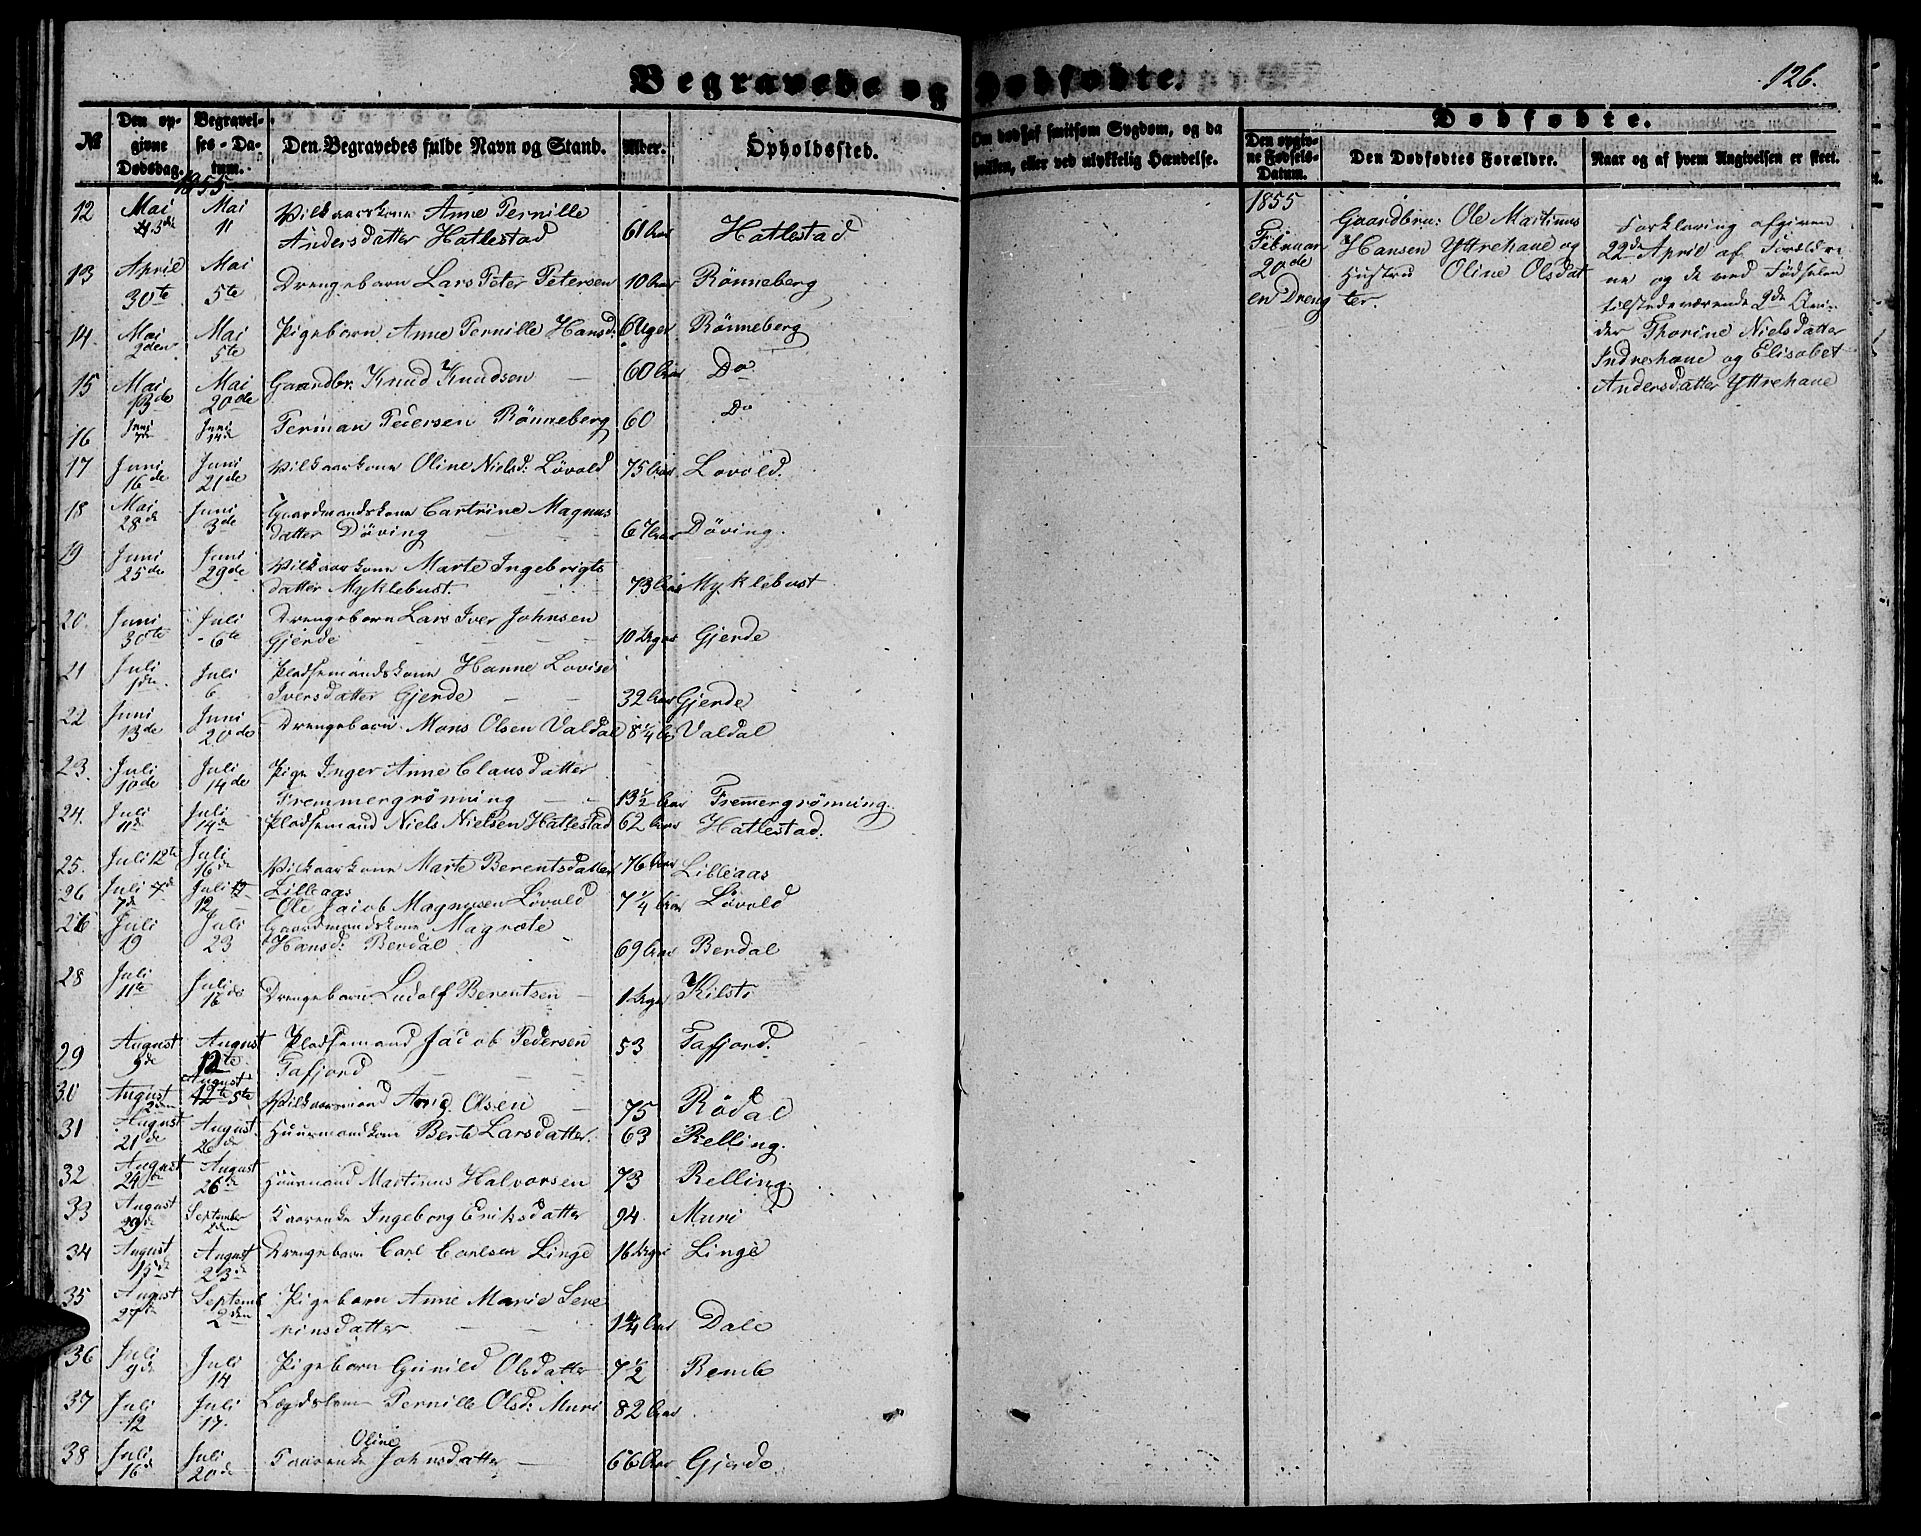 126.
Begravede og Dødfødte.
No
Den opgivne Dødsdag.
Begravelses-Datum.
Den Begravedes fulde Navn og Stand.
Alder.
Opholdssted.
Om død af smitsom Sygdom, og da hvilken, eller ved ulykkelig Hændelse.
Dødfødte.
Den opgivne Fødsels-Datum.
Den Dødfødtes Forældre.
Naar og af hvem Angivelsen er skeet.
1855
12 Mai Mai 11 Vilkaarskone Anne Pernille
Andersdatter Hatlestad 61 Aar Hatlestad
13 April 30te Mai 5te Drengebarn Lars Peter Petersen 10 Rönneberg
14. Mai 2den Mai 5te Pigebarn Anne Pernille Hansd: 6 Uger Rönneberg
15 Mai 13de Mai 20de Gaardbr. Knud Knudsen 60 Aar Do
16 Juni Juni 14de Perman Pedersen Rönneberg 60 Do
17 Juni 16de Juni 21de Vilkaarskone Oline Nielsd: Lövold 75 Aar Lovold.
18 Mai 28de Juni 3de Gaardmandskone Cartrine Magnus
datter Döving 67 Aar Döving.
19 Juni 25de Juni 29de Vilkaarskone Marte Ingebrigts
datter Myklebust. 73 Aar Myklebust
20. Juni 30te Juli 6te Drengebarn Lars Iver Johnsen
Gjerde 10 Uger Gjerde
21 Juli 1de Juli 6 Pladsemandskone Hanne Lovise
Iversdatter Gjerde 32 Aar Gjerde
22 Juni 13de Juni 20de Drengebarn Mons Olsen Valdal 8 1/4 Valdal
23. Juli 10de Juli 14de Pige Inger Anne Clausdatter
Fremmergrönning 13 1/2 Aar Fremmergrönning.
24. Juli 11de Juli 14de Pladsemand Niels Nielsen Hatlestad 62 Aar Hatlestad.
25. Juli 12te Juli 16de Vilkaarskone Marte Berentsdatter 76 Aar Lilleaas
Lilleaas
26 Juli 7de Juli 12 Ole Jacob Magnusen Lövold 7 1/4 Aar Lövold
26 Juli 19 Juli 23 Gaardmandskone Magrete
Hansd: Berdal 69 Aar Berdal
28 Juli 11te Juli 16 Drengebarn Ludolf Berentsen 1 Uger Kilsti
29 August August 12te Pladsemand Jacob Pedersen 53 Tafjord.
Tafjord
30 August 2den August 5te Vilkaarsmand Arne Olsen 75 Rödal
31 August 21de August 26de Huusmandskone Berte Larsdatter. 63 Relling.
32 August August 26de Huusmand Martinus Halvorsen 73 Relling.
33 August 29de September 2den Ingeborg Eriksdatter 94 Muri
34 August 15de August 23de Drengebarn Carl Carlsen Linge 16 Uger Linge
35 August 27de Septemb 2den Pigebarn Anne Marie Seve
rinsdatter 1 1/4 Aar Dale
36 Juli 9de Juli 14 Pigebarn Gunild Olsdatter 7 1/2 Remb
37 Juli 12 Juli 17. Lægdslem Pernille Olsd: Muri 82 Aar
38 Juli 16de Juli 20de Oline Johnsdatter 66 Aar Gjerde
1855
Februar
20de
en Dreng
Gaardbru: Ole Martinus
Hansen Yttrehane og
Hustru Oline Olsdat
ter.
Forklaring afgiven
22de April af Forældre
ne og de ved Födselen
tilstedeværende 2de Qvin
der Thorine Nielsdatter
Indrehane og Elisabet
Andersdatter Yttrehane